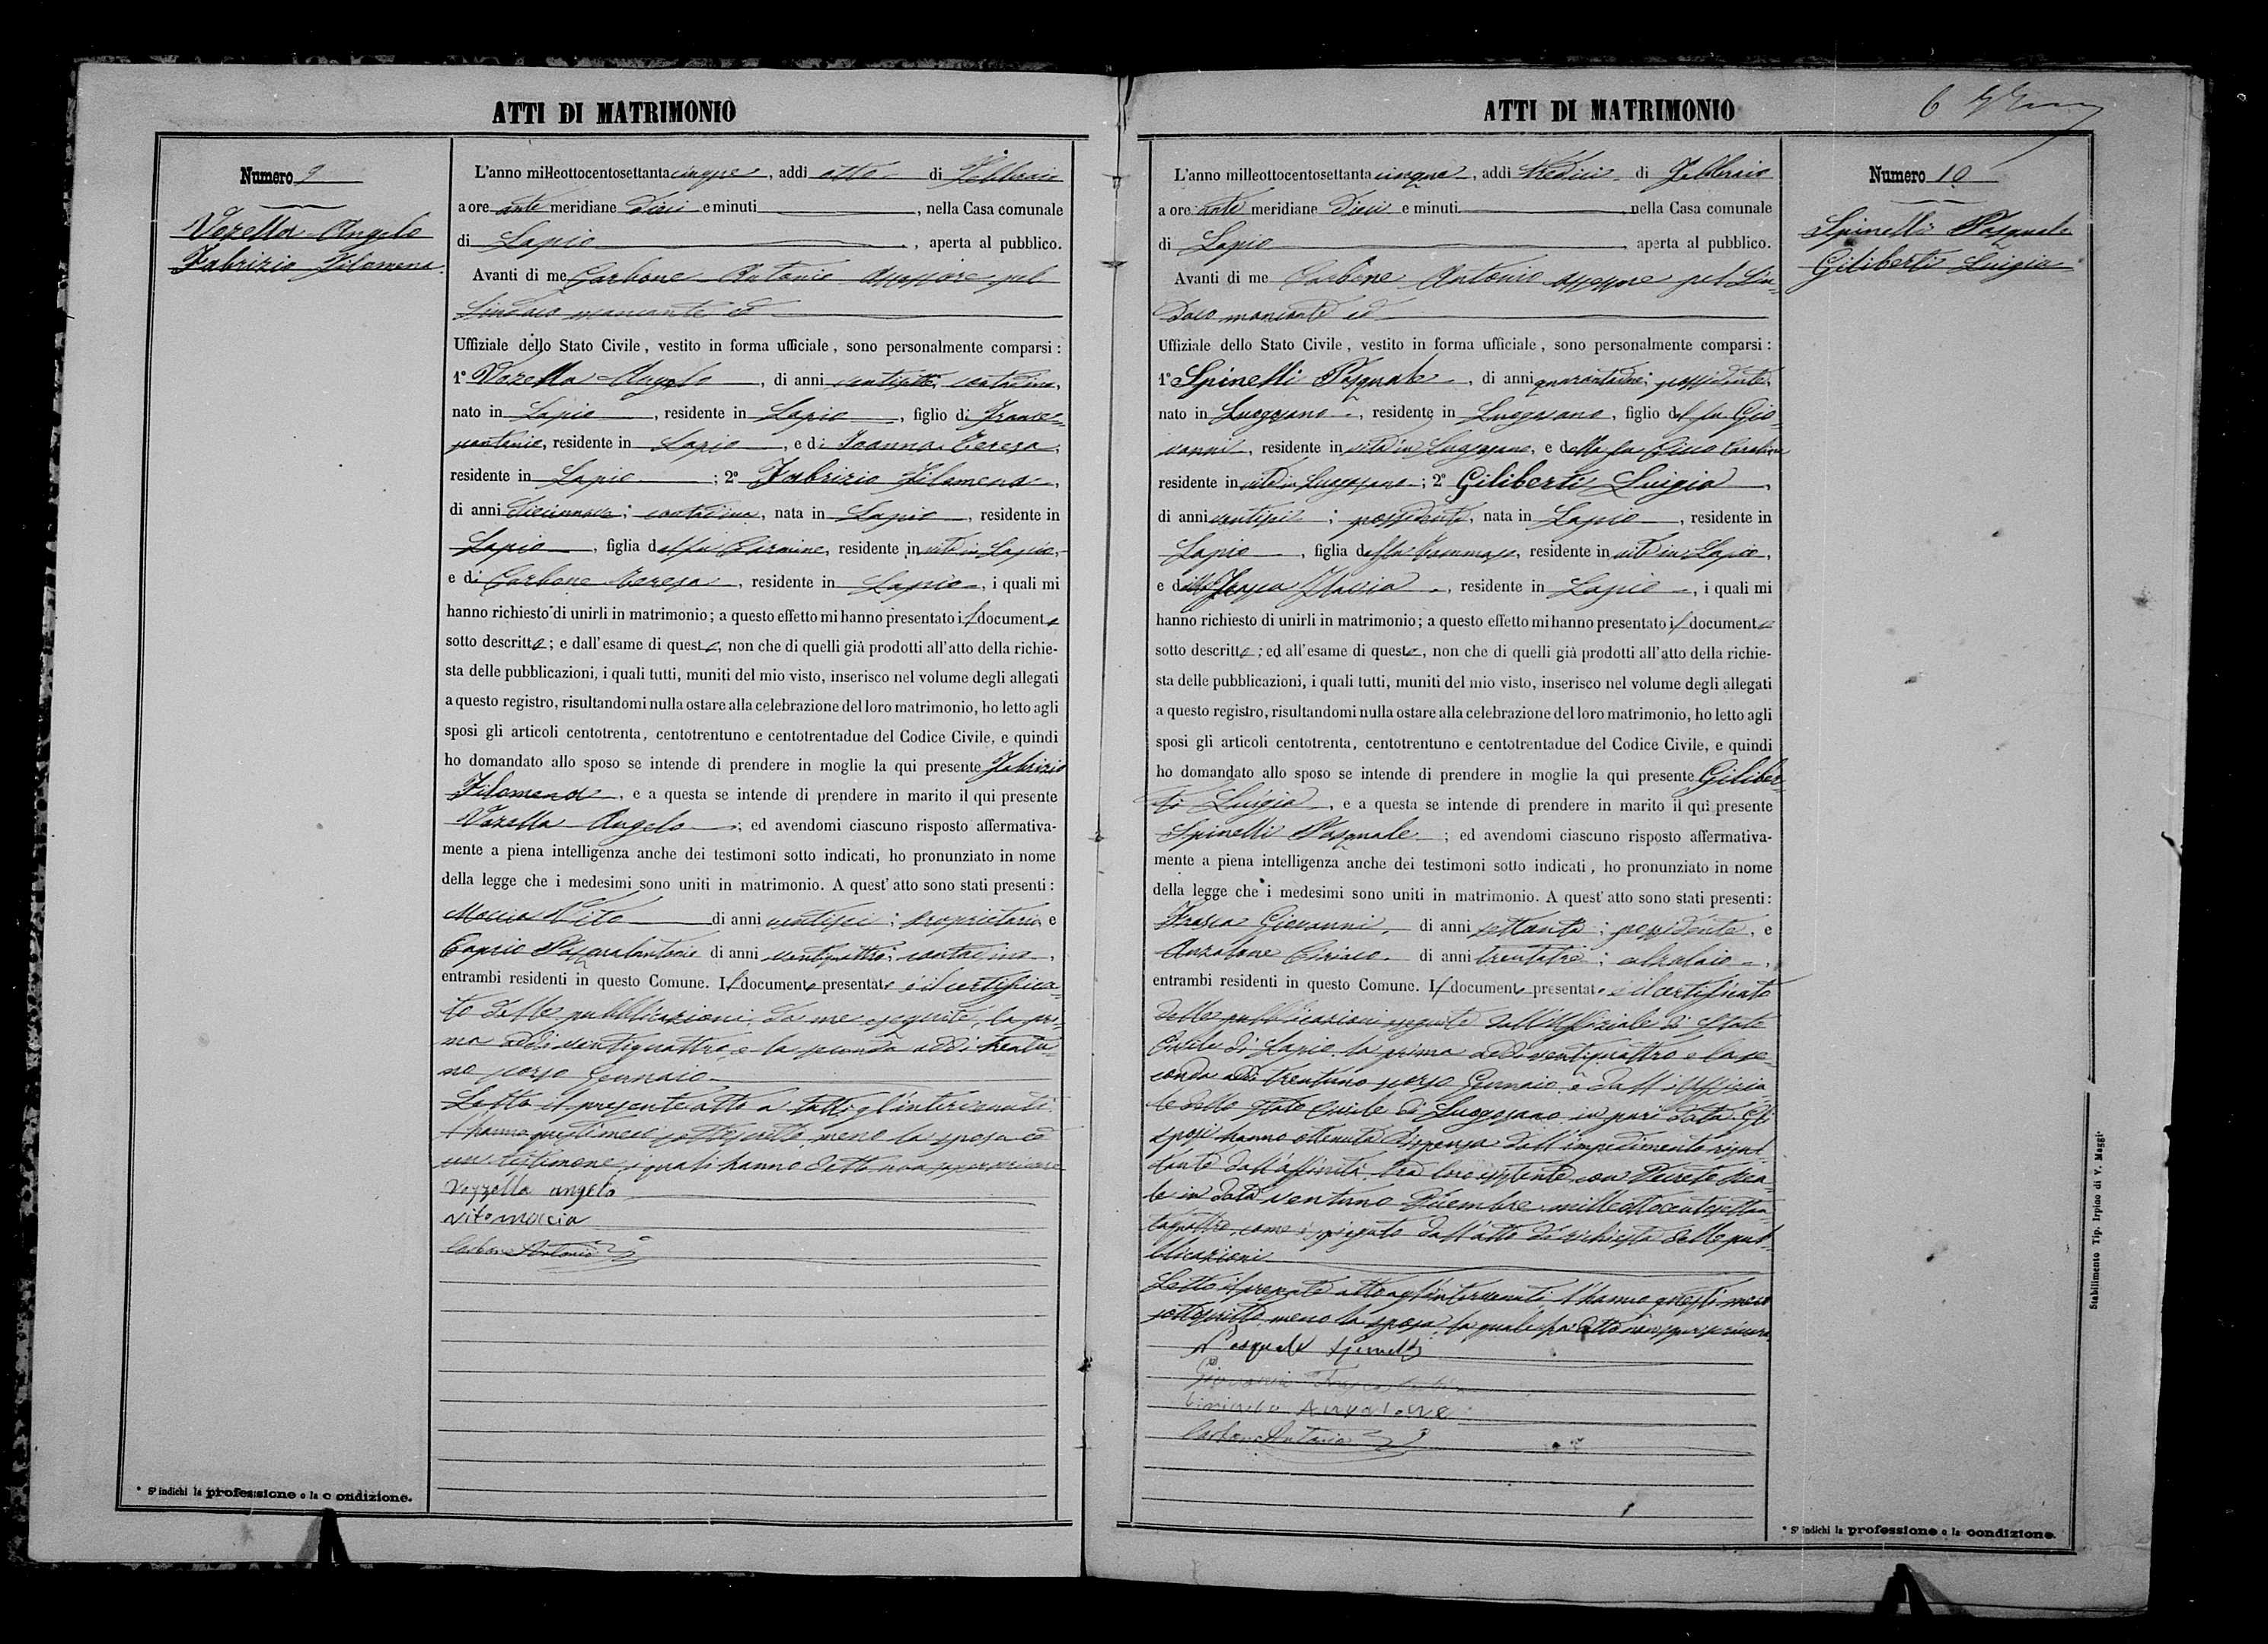 ATTI DI MATRIMONIO
Numero 9
Vozella Angelo
Fabrizio Filomena
L'anno milleottocentosettantacinque, addì otto di Febbraio
a ore ante meridiane dieci e minuti, nella Casa comunale
di Lapio, aperta al pubblico.
Avanti di me Carbone Antonio Assessore pel
Sindaco mancante ed
Uffiziale dello Stato Civile, vestito in forma ufficiale, sono personalmente comparsi:
1° Vozella Angelo, di anni contadino,
nato in Lapio, residente in Lapio, figlio di Frances=
cantonio, residente in Lapio, e di Ioanna Teresa,
residente in Lapio; 2° Fabrizio Filomena,
di anni diciannove; contadina, nata in Lapio, residente in
Lapio, figlia del fu Carmine, residente in vita in Lapio,
e di Carbone Teresa, residente in Lapio, i quali mi
hanno richiesto di unirli in matrimonio; a questo effetto mi hanno presentato il documento
sotto descritto; e dall'esame di questo, non che di quelli già prodotti all'atto della richie-
sta delle pubblicazioni, i quali tutti, muniti del mio visto, inserisco nel volume degli allegati
a questo registro, risultandomi nulla ostare alla celebrazione del loro matrimonio, ho letto agli
sposi gli articoli centotrenta, centotrentuno e centotrentadue del Codice Civile, e quindi
ho domandato allo sposo se intende di prendere in moglie la qui presente Fabrizio
Filomena, e a questa se intende di prendere in marito il qui presente
Vozella Angelo; ed avendomi ciascuno risposto affermativa-
mente a piena intelligenza anche dei testimoni sotto indicati, ho pronunziato in nome
della legge che i medesimi sono uniti in matrimonio. A quest'atto sono stati presenti:
Moccia Vito di anni ventisei; proprietario e
Caprio Pasqualantonio di anni ventiquattro; contadino,
entrambi residenti in questo Comune. Il documento presentato è il certifica=
to delle pubblicazioni da me eseguite, la pri=
ma addì ventiquattro e la seconda addì trentu=
no scorso Gennaio.
Letto il presente atto a tutti gl'intervenuti
l'hanno questi meco sottoscritto meno la sposa ed
un testimone, i quali hanno detto non saper scrivere
Vozzella angelo
Vito Moccia
Carbone Antonio
* Si indichi la professione o la condizione.
ATTI DI MATRIMONIO
6
Numero 10
Spinelli Pasquale
Giliberti Luigia
L'anno milleottocentosettantacinque, addì tredici di Febbraio
a ore ante meridiane dieci e minuti, nella Casa comunale
di Lapio aperta al pubblico.
Avanti di me Carbone Antonio assessore pel Sin=
daco mancante ed
Uffiziale dello Stato Civile, vestito in forma ufficiale, sono personalmente comparsi:
1° Spinelli Pasquale, di anni possidente,
nato in Luogosano, residente in Luogosano, figlio del fu Gio=
vanni, residente in vita in Luogosano, e della fu Carolina
residente in vita in Luogosano; 2° Giliberti Luigia,
di anni ventisei; possidente, nata in Lapio, residente in
Lapio, figlia del fu Tommaso, residente in vita in Lapio,
e di Frasca Maria, residente in Lapio, i quali mi
hanno richiesto di unirli in matrimonio; a questo effetto mi hanno presentato il documento
sotto descritto; ed all'esame di questo, non che di quelli già prodotti all'atto della richie-
sta delle pubblicazioni, i quali tutti, muniti del mio visto, inserisco nel volume degli allegati
a questo registro, risultandomi nulla ostare alla celebrazione del loro matrimonio, ho letto agli
sposi gli articoli centotrenta, centotrentuno e centotrentadue del Codice Civile, e quindi
ho domandato allo sposo se intende di prendere in moglie la qui presente Giliber=
ti Luigia, e a questa se intende di prendere in marito il qui presente
Spinelli Pasquale; ed avendomi ciascuno risposto affermativa-
mente a piena intelligenza anche dei testimoni sotto indicati, ho pronunziato in nome
della legge che i medesimi sono uniti in matrimonio. A quest'atto sono stati presenti:
Frasca Giovanni, di anni settanta; possidente, e
Anzalone Ciriaco, di anni trentatre; calzolaio,
entrambi residenti in questo Comune. Il documento presentato è il certificato
delle pubblicazioni eseguite dall'Uffiziale di Stato
Civile di Lapio la prima addì ventiquattro e la se=
conda addì trentuno scorso Gennaio, e dall'Uffizia=
le dello Stato Civile di Luogosano in pari data. Gli
sposi hanno ottenuta dispensa dall'impedimento risul=
tante dall'affinità tra loro esistente con Decreto Rea=
le in data ventuno Dicembre milleottocentosettan=
taquattro, come è spiegato dall'atto di richiesta delle pub=
blicazioni
Letto il presente atto agl'intervenuti l'hanno questi meco
sottoscritto meno la sposa, la quale ha detto non saper scrivere.
Pasquale Spinelli
Giovanni
Anzalone
Carbone Antonio
* Si indichi la professione o la condizione.
Stabilimento Tip. Irpino di V. Maggi